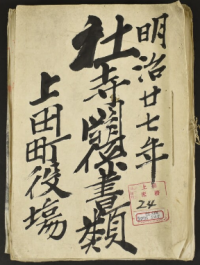 明治廿七年
社寺関係書類
上田町役場
24